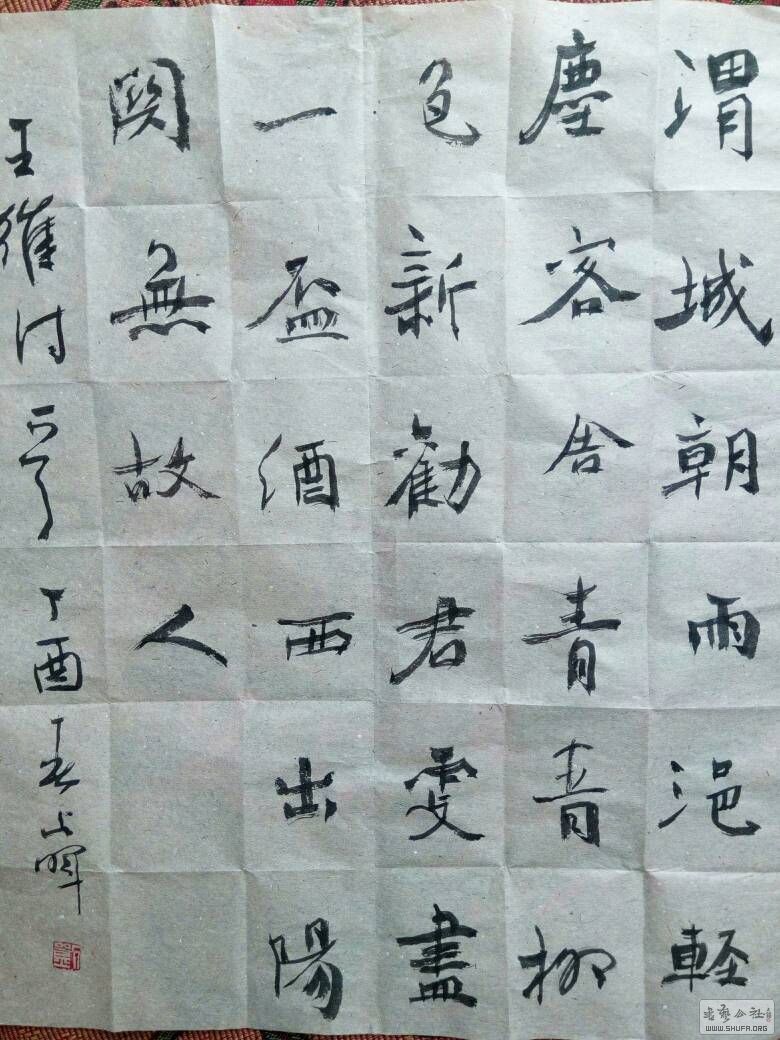 渭城朝雨浥軽
塵客舍青青柳
色新勸君更盡
一盃酒西出陽
関無故人
王維诗丁酉春
书艺公社
WWW.SHUFA.ORG